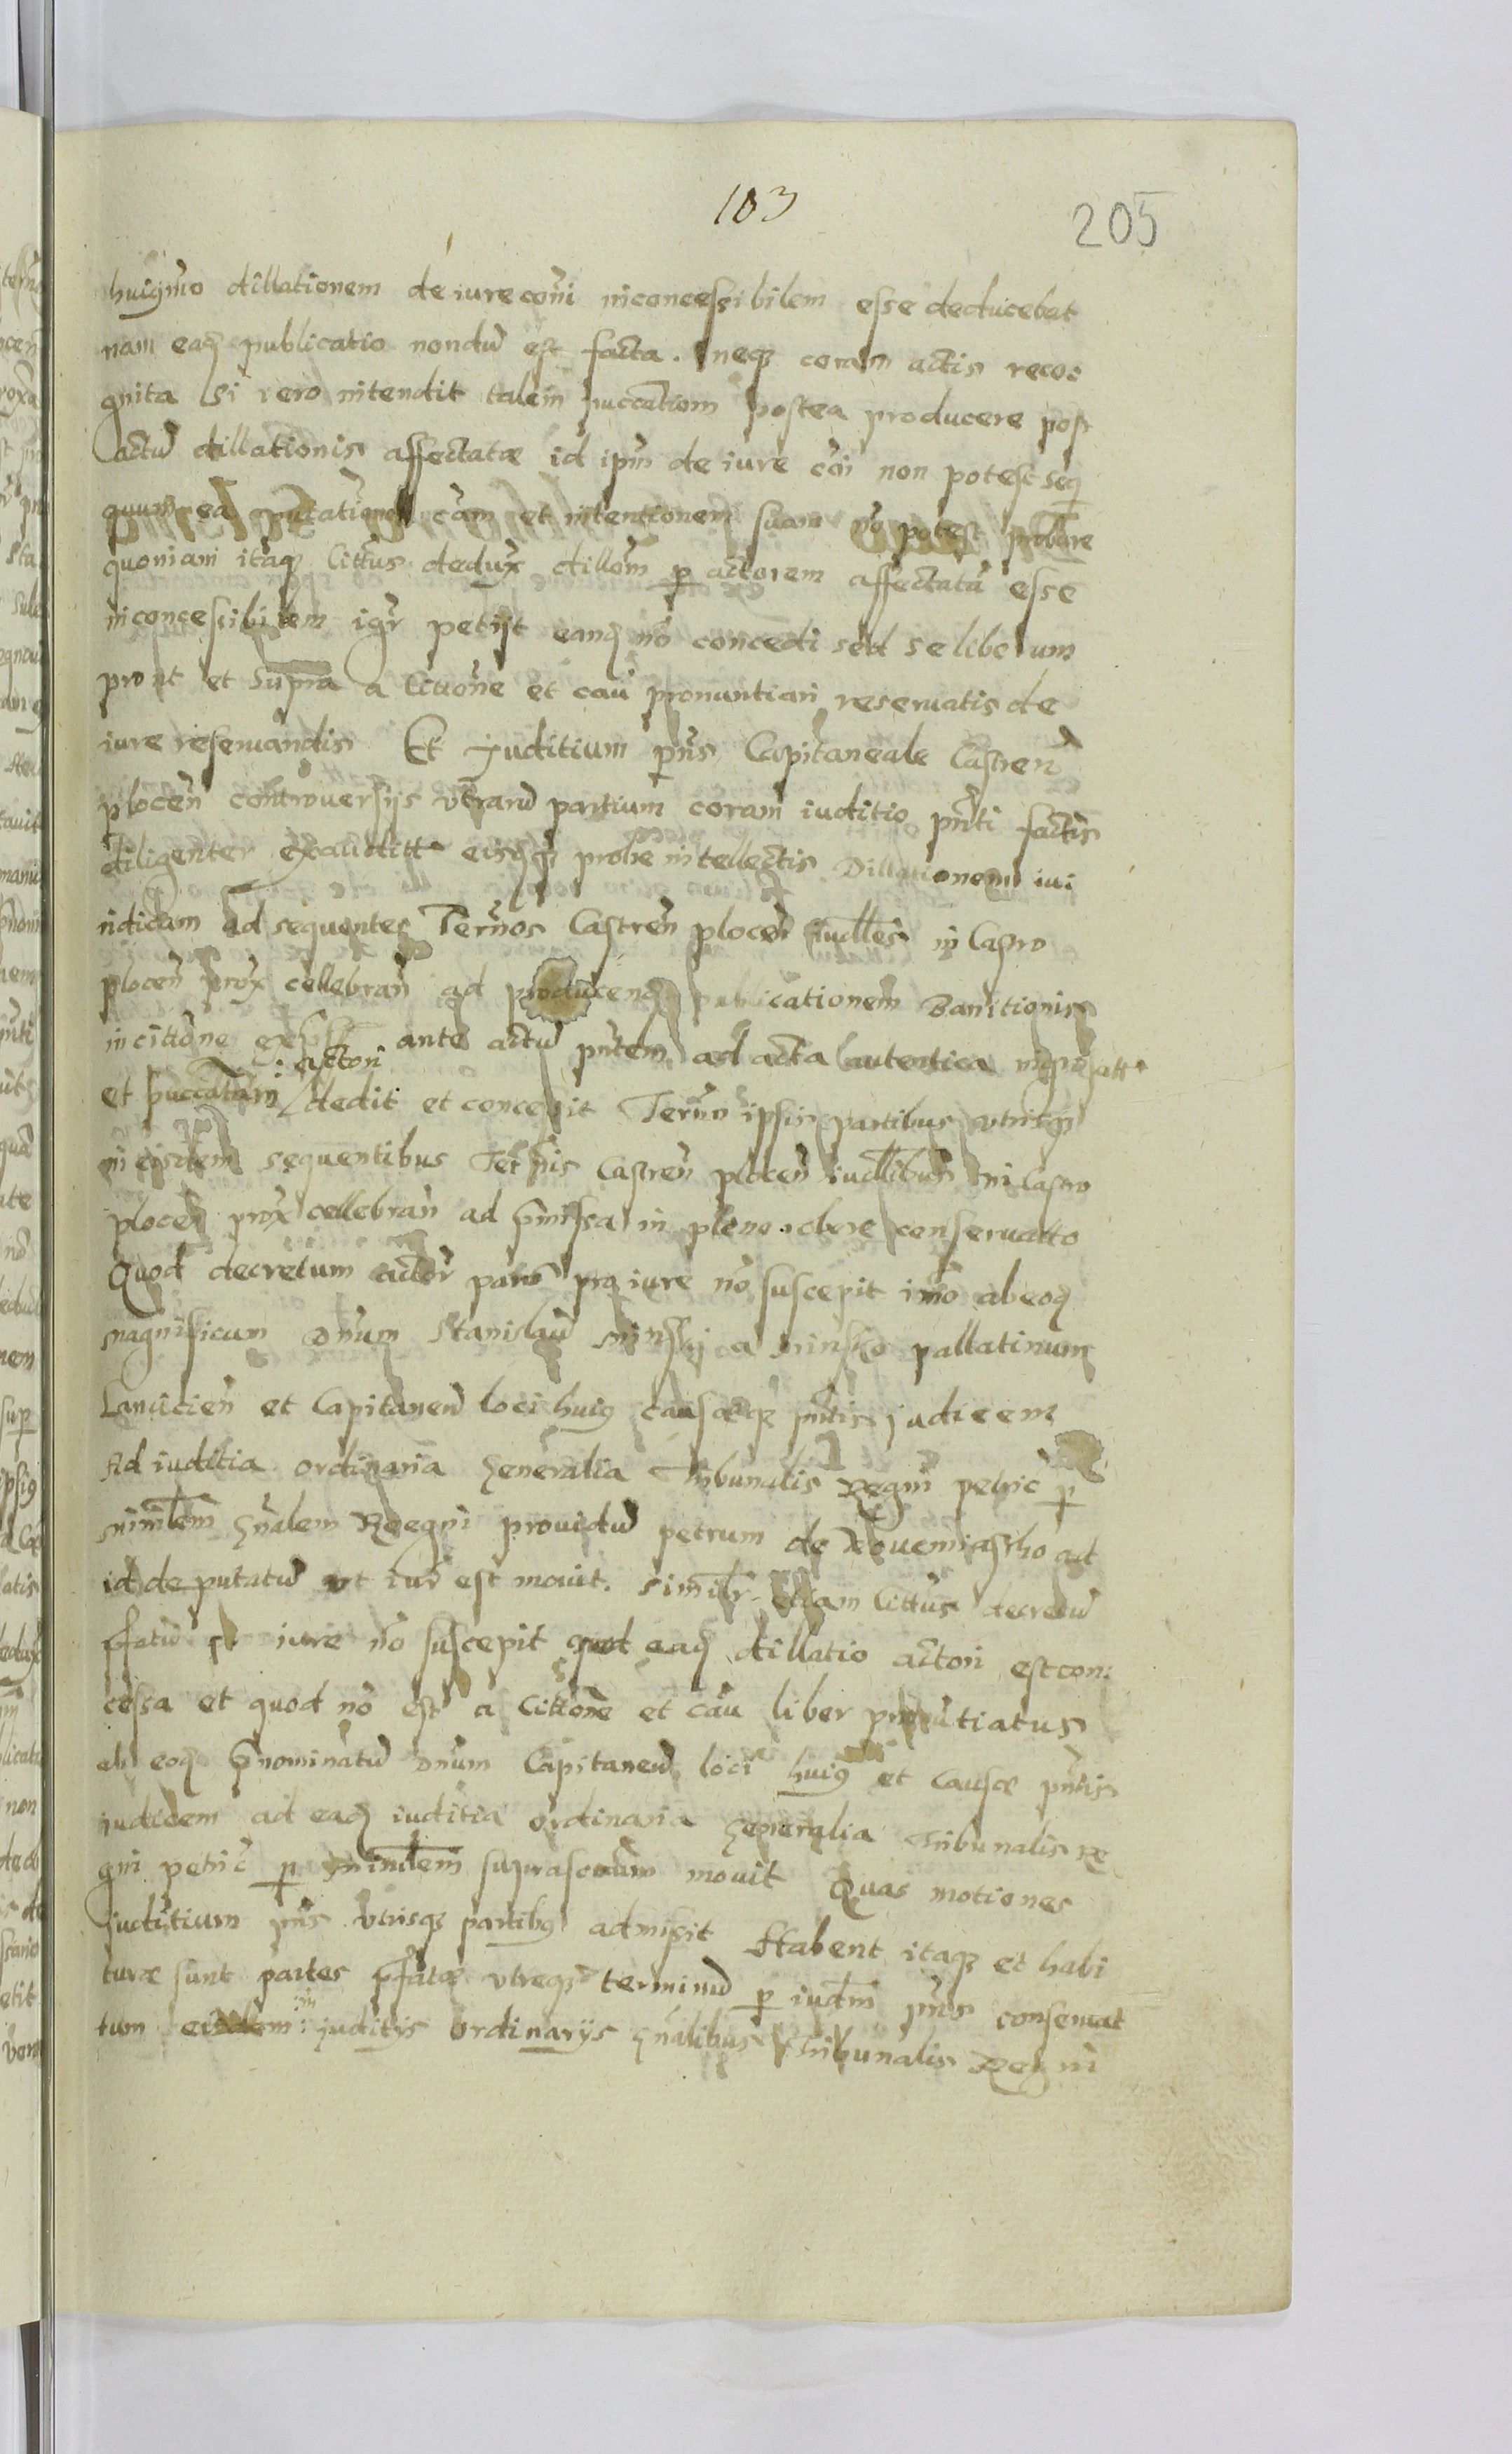 103
205
huiqmo dillationem de iure com̃i inconcessibilem esse deducebat
nam eaq publicatio nondũ est facta. neqz coram actis reco:
gnita Si vero intendit talem puccatiom postea producere post
actũ dillationis affectatæ id ipm̃ de iure cõi non potest seq
quum ea cãm et intentionem suam nõ potest probare
quoniam itaqz cittus dedux dillom̃ p actorem affectatã esse
inconcessibilem igr petijt eanq nõ concedi sed se liberum
prout et supra a cittone et cau pronuntiari reservatis de
iure reservandis Et Juditium pñs Capitaneale Castreñ
ploceñ controversijs vtrarũ partium coram iuditio pñti factis
diligenter exauditt eisqz probe intellectis Dillationem iui
ridicam ad sequentes Termõs Castreñ ploceñ iudlles in Castro
ploceñ prox cellebrañ ad producenq publicationem Banitionis
in cittone ante actũ pñtem ad acta autentica
: actori
et puccatam dedit et concessit Termũ ipsis partibus vtrisqz
in eisdem sequentibus Termis Castreñ ploceñ iudllibus in Castro
ploceñ prox cellebrañ ad pmissa in pleno robore conservatto
Quod decretum actor pars pro iure nõ suscepit imõ ab eoq
magnificum Dnum Stanislaũ minskj a minsko pallatinum
Lancicieñ et Capitaneũ loci huiq causæqz pñtis judicem
Ad iuditia ordinaria Generalia Tribunalis Regni petric p
minrlem gñalem Reegni providũ petrum de Nouemiastho ad
id deputatũ vt iur est movit. Similr etiam Cittus decretũ
pfatũ pr iure nõ suscepit quod eaq dillatio actori est con:
cessa et quod nõ est a Cittone et cau liber pronũtiatus
ab eoq pnominatũ Dnum Capitaneũ loci huiq et Causæ pñtis
iudicem ad eaq iuditia ordinaria Generalia Tribunalis Re
gni petric p minrlem suprascrittum movit Quas motiones
Juditium pñs vtrisqz partibq admisit Habent itaqz et habi
turæ sunt partes pfatæ vtreqz terminũ p iudm̃ pñs conservat
in
tum eisdem : juditijs ordinarijs gñalibus Tribunalis Regni